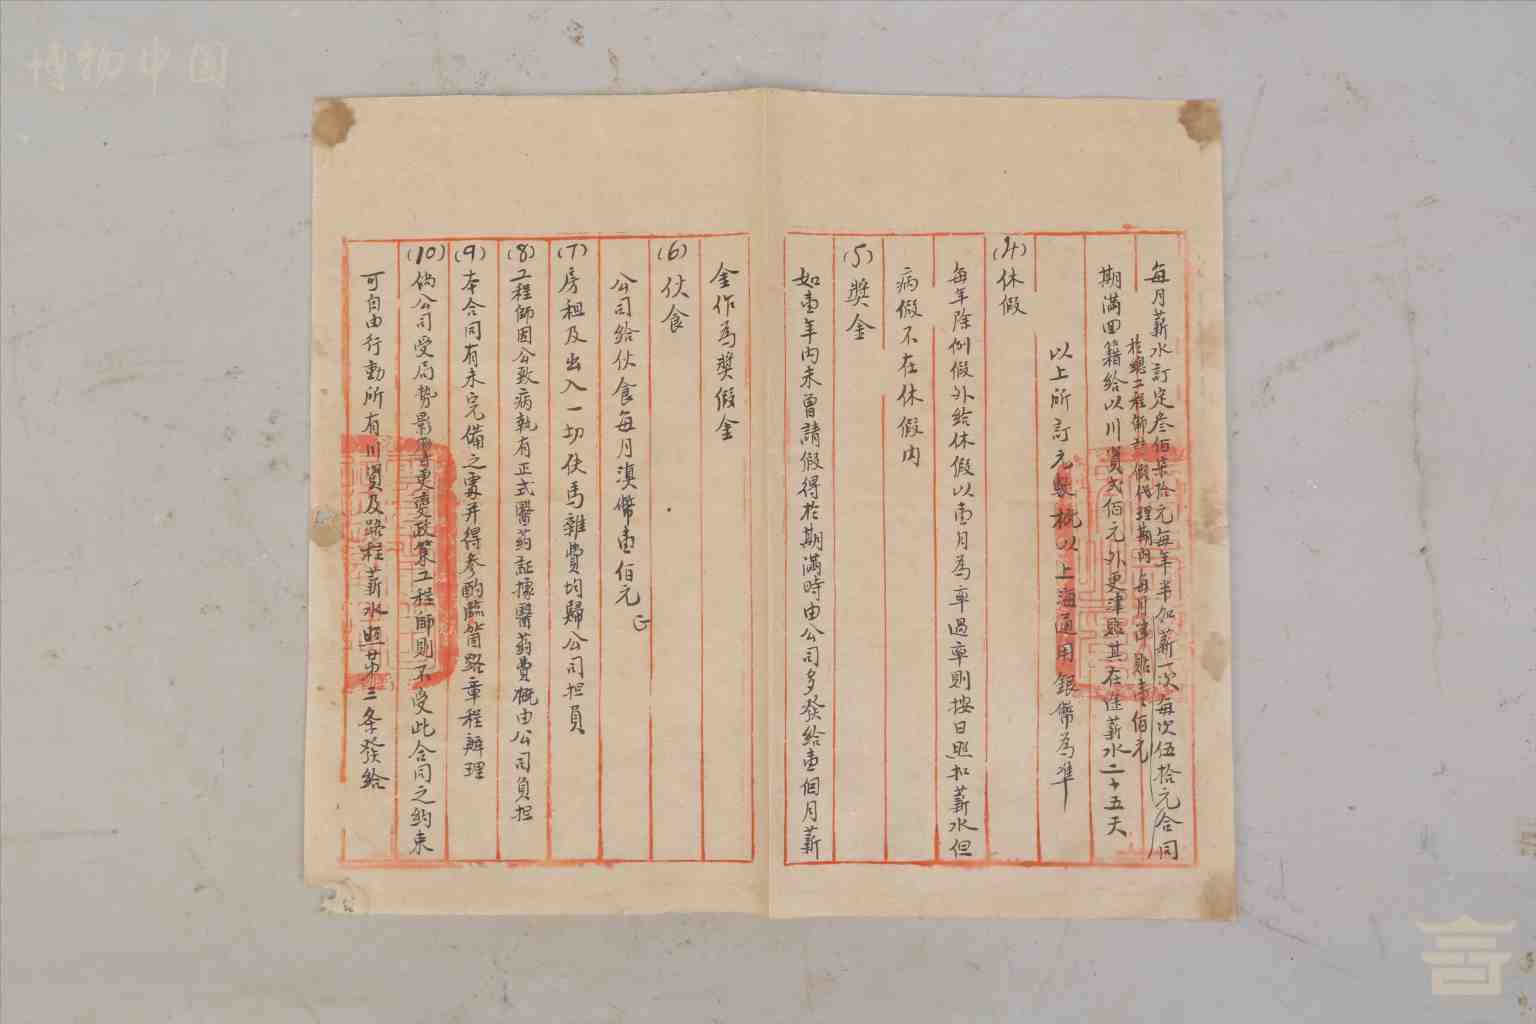 博物中国
每月薪水訂定叁佰柒拾元每年半加薪一次每次伍拾元合同
在總工程師請假代理期內每月津貼壹佰元
期滿回籍給以川資弍佰元外更津貼其在途薪水二十五天
以上所訂元數概以上海通用銀幣為準
(4)休假
每年除例假外給休假以壹月為率過率則按日照扣薪水但
病假不在休假內
(5)獎金
如壹年內未曾請假得於期滿時由公司多發給壹個月薪
金作為獎假金
(6)伙食
公司給伙食每月滇幣壹佰元
(7)房租及出入一切伕馬雜費均歸公司担負
(8)工程師因公致病執有正式醫药証據醫药費概由公司負担
(9)本合同有未完備之處并得參酌臨箇路章程辦理
(10)倘公司受局勢影響更變政策工程師則不受此合同之約束
可自由行動所有川資及路程薪水照第三條發給